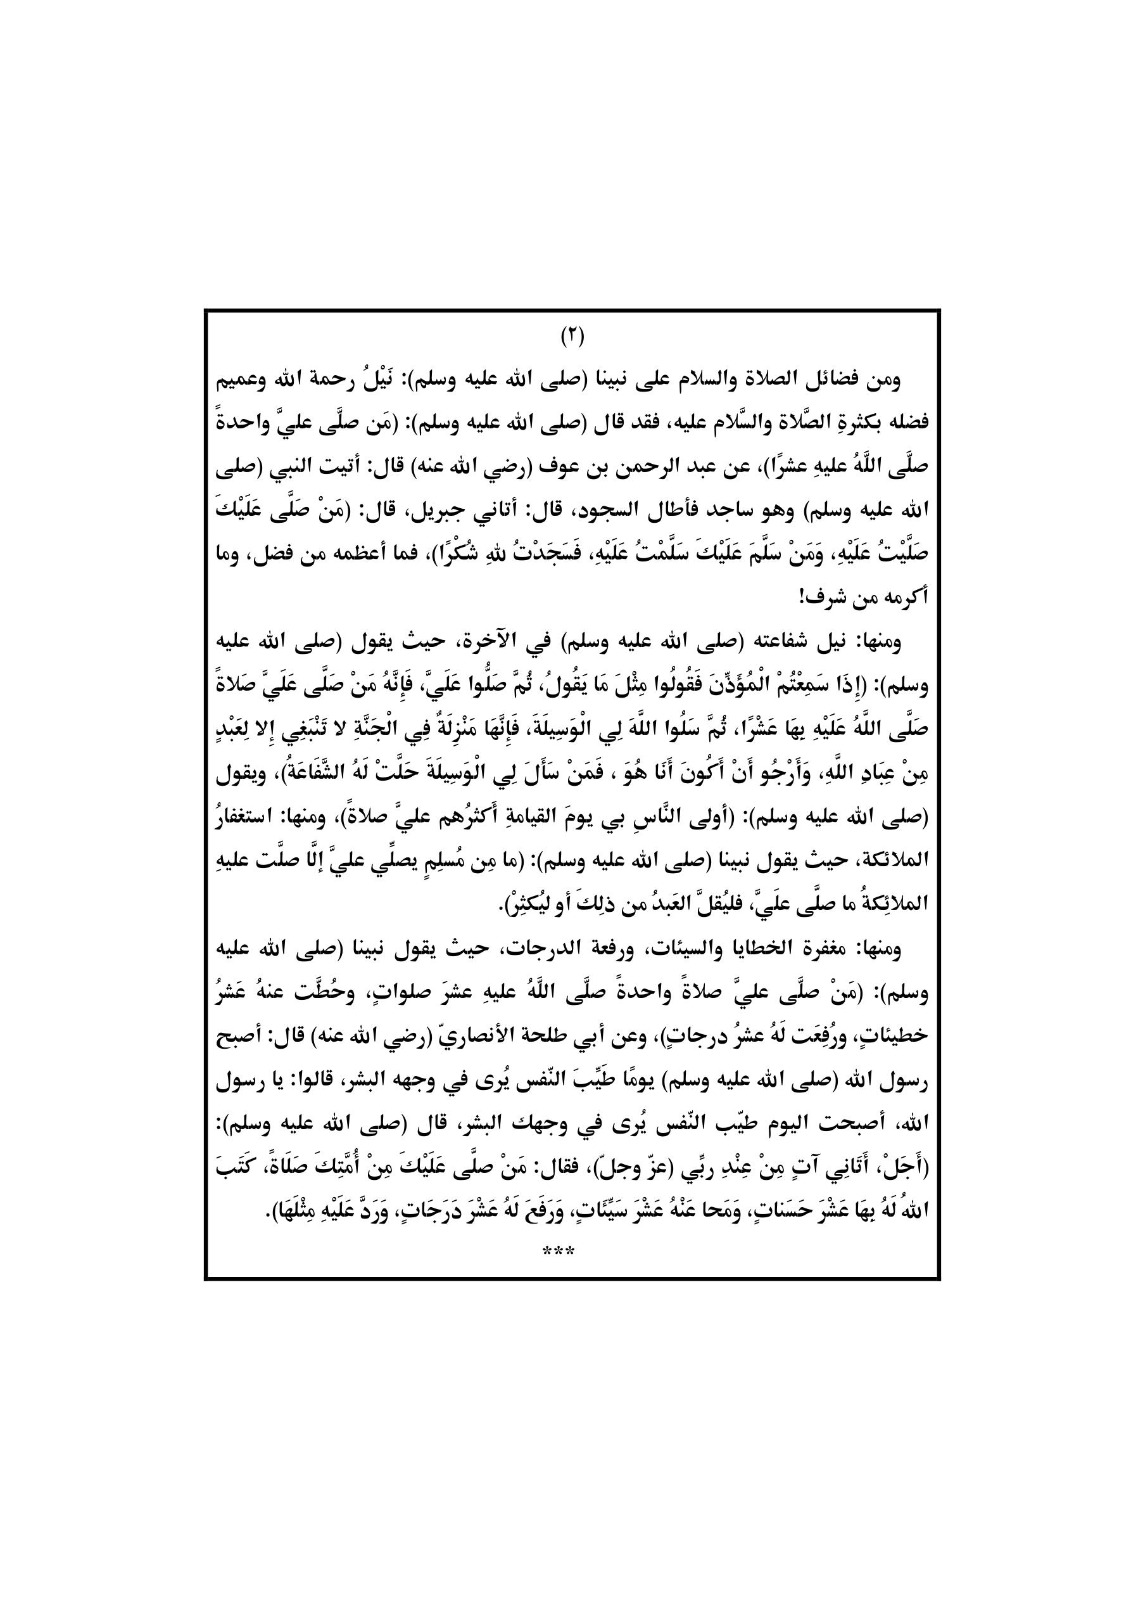 (٢)
ومن فضائل الصلاة والسلام على نبينا (صلى الله عليه وسلم): نَيْلُ رحمة الله وعميم
فضله بكثرةِ الصَّلاة والسَّلام عليه، فقد قال (صلى الله عليه وسلم): (مَن صلَّى عليَّ واحدةً
صلَّى اللَّهُ عليهِ عشرًا)، عن عبد الرحمن بن عوف (رضي الله عنه) قال: أتيت النبي (صلى
الله عليه وسلم) وهو ساجد فأطال السجود، قال: أتاني جبريل، قال: (مَنْ صَلَّى عَلَيْكَ
صَلَّيْتُ عَلَيْهِ، وَمَنْ سَلَّمَ عَلَيْكَ سَلَّمْتُ عَلَيْهِ، فَسَجَدْتُ للهِ شُكْرًا)، فما أعظمه من فضل، وما
أكرمه من شرف!
ومنها: نيل شفاعته (صلى الله عليه وسلم) في الآخرة، حيث يقول (صلى الله عليه
وسلم): (إِذَا سَمِعْتُمْ الْمُؤَذِّنَ فَقُولُوا مِثْلَ مَا يَقُولُ، ثُمَّ صَلُّوا عَلَيَّ، فَإِنَّهُ مَنْ صَلَّى عَلَيَّ صَلاةً
صَلَّى اللَّهُ عَلَيْهِ بِهَا عَشْرًا، ثُمَّ سَلُوا اللَّهَ لِي الْوَسِيلَةَ، فَإِنَّهَا مَنْزِلَةٌ فِي الْجَنَّةِ لا تَنْبَغِي إِلا لِعَبْدٍ
مِنْ عِبَادِ اللَّهِ، وَأَرْجُو أَنْ أَكُونَ أَنَا هُوَ ، فَمَنْ سَأَلَ لِي الْوَسِيلَةَ حَلَّتْ لَهُ الشَّفَاعَةُ)، ويقول
(صلى الله عليه وسلم): (أولى النَّاسِ بي يومَ القيامةِ أَكثرُهم عليَّ صلاةً)، ومنها: استغفارُ
الملائكة، حيث يقول نبينا (صلى الله عليه وسلم): (ما مِن مُسلِمٍ يصلِّي عليَّ إلَّا صلَّت عليهِ
الملائِكةُ ما صلَّى علَيَّ، فليُقلَّ العَبدُ من ذلِكَ أو ليُكثِرْ).
ومنها: مغفرة الخطايا والسيئات، ورفعة الدرجات، حيث يقول نبينا (صلى الله عليه
وسلم): (مَنْ صلَّى عليَّ صلاةً واحدةً صلَّى اللَّهُ عليهِ عشرَ صلواتٍ، وحُطَّت عنهُ عَشرُ
خطيئاتٍ، ورُفِعَت لَهُ عشرُ درجاتٍ)، وعن أبي طلحة الأنصاريّ (رضي الله عنه) قال: أصبح
رسول الله (صلى الله عليه وسلم) يومًا طَيِّبَ النّفس يُرى في وجهه البشر، قالوا: يا رسول
الله، أصبحت اليوم طيّب النّفس يُرى في وجهك البشر، قال (صلى الله عليه وسلم):
(أَجَلْ، أَتَانِي آتٍ مِنْ عِنْدِ ربِّي (عزّ وجلّ)، فقال: مَنْ صلَّى عَلَيْكَ مِنْ أُمَّتِكَ صَلَاةً، كَتَبَ
اللهُ لَهُ بِهَا عَشْرَ حَسَناتٍ، وَمَحا عَنْهُ عَشْرَ سَيِّئَاتٍ، وَرَفَعَ لَهُ عَشْرَ دَرَجَاتٍ، وَرَدَّ عَلَيْهِ مِثْلَهَا).
***